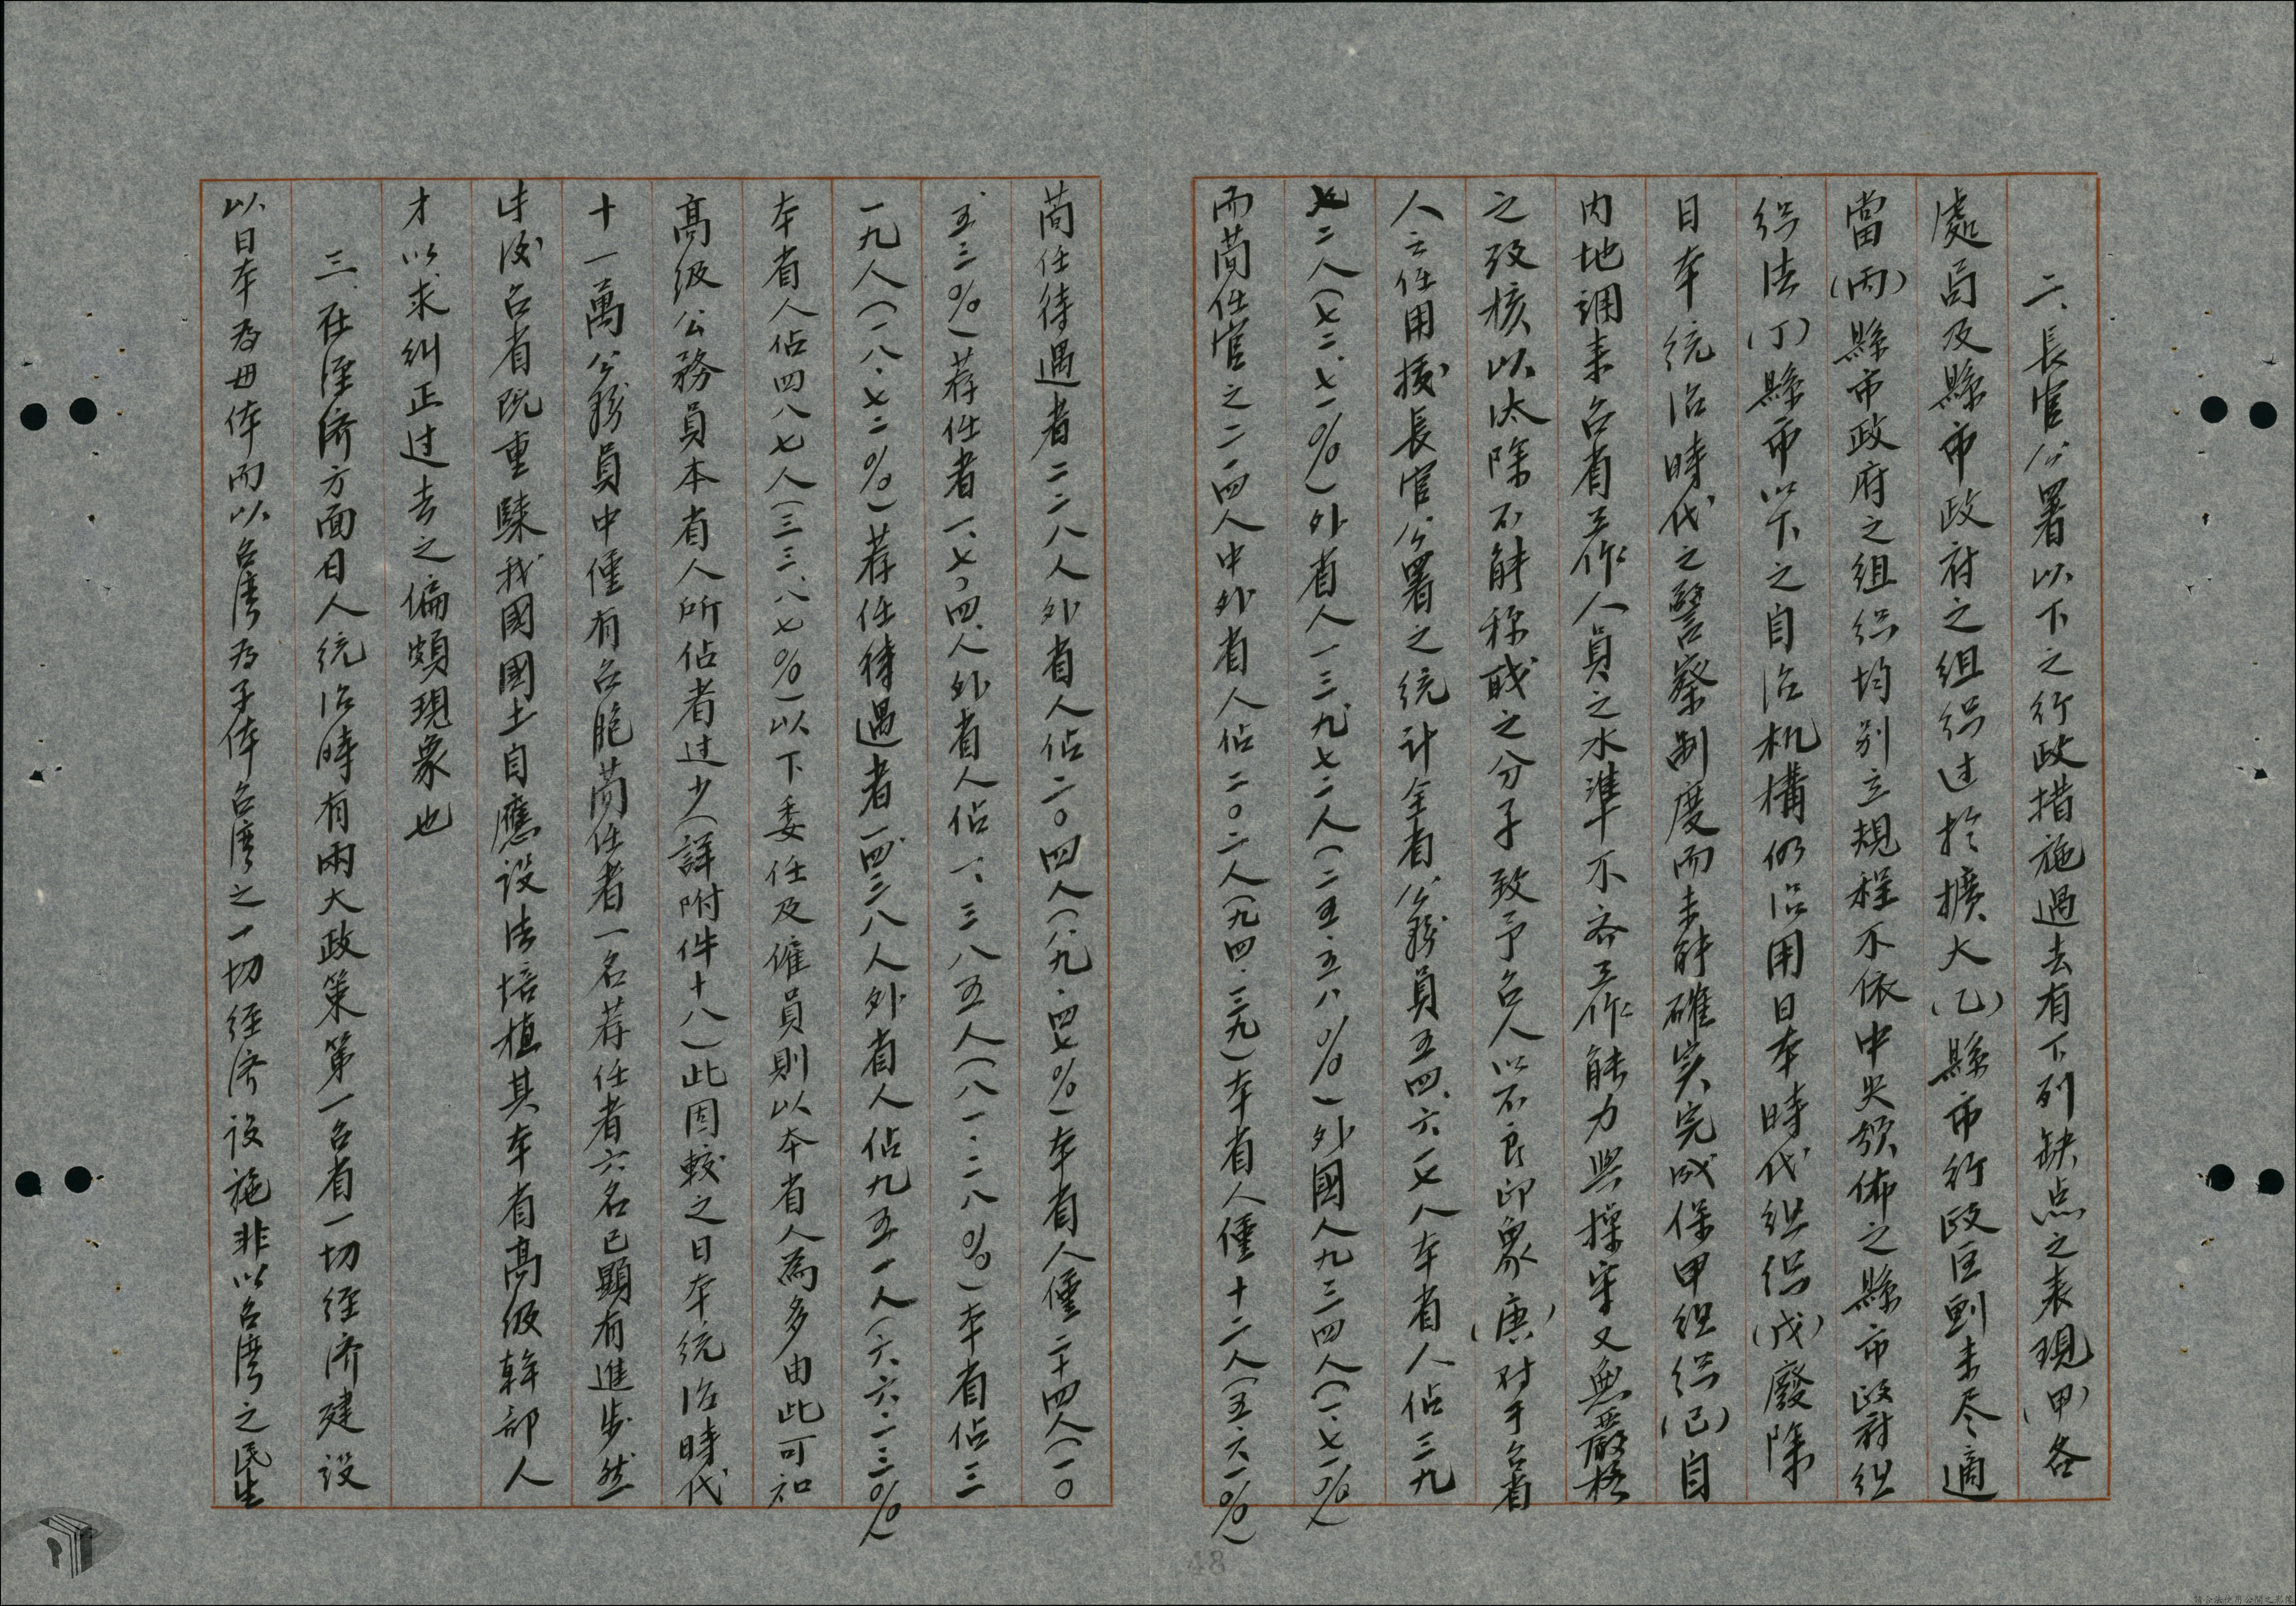 二、長官公署以下之行政措施過去有下列缺点之表現(甲)各
處局及縣市政府之组织过於擴大(乙)縣市行政区劃未尽適
當(丙)縣市政府之组织均别立規程不依中央頒佈之縣市政府组
织法(丁)縣市以下之自治机構仍沿用日本時代组织(戊)廢除
日本統治時代之警察制度而未能確实完成保甲组织(己)自
内地調来台省工作人員之水準不齐工作能力與操守又無嚴格
之攷核以汰除不能称職之分子致予台人以不良印象(庚)对于台省
人之任用援長官公署之统计全省公務員五四、六一七人本省人佔三九
七二八人(七二、七一%)外省人一三九七二人(二五·五八%)外國人九三四人(一、七一%)
而简任官之二一四人中外省人佔二〇二人(九四·三九)本省人僅十二人(五、六一%)
简任待遇者二二八人外省人佔二〇四人(八九·四七%)本省人僅二十四人(一〇
五三%)荐任者一、七〇四人外省人佔一、三八五人(八一·二八%)本省佔三
一九人(一八·七二%)荐任待遇者一四三八人外省人佔九五一人(六六·一三%)
本省人佔四八七人(三三、八七%)以下委任及僱員則以本省人為多由此可知
高级公務員本省人所佔者过少(詳附件十八)此固較之日本统治時代
十一萬公務員中僅有台胞简任者一名荐任者六名已顯有進步然

台省既重隸我國國土自應设法培植其本省高级幹部人
才以求糾正过去之偏頗現象也
三、在经济方面日人统治時有兩大政策第一台省一切经济建设
以日本为母体而以台湾为子体台湾之一切经济设施非以台湾之民生
48